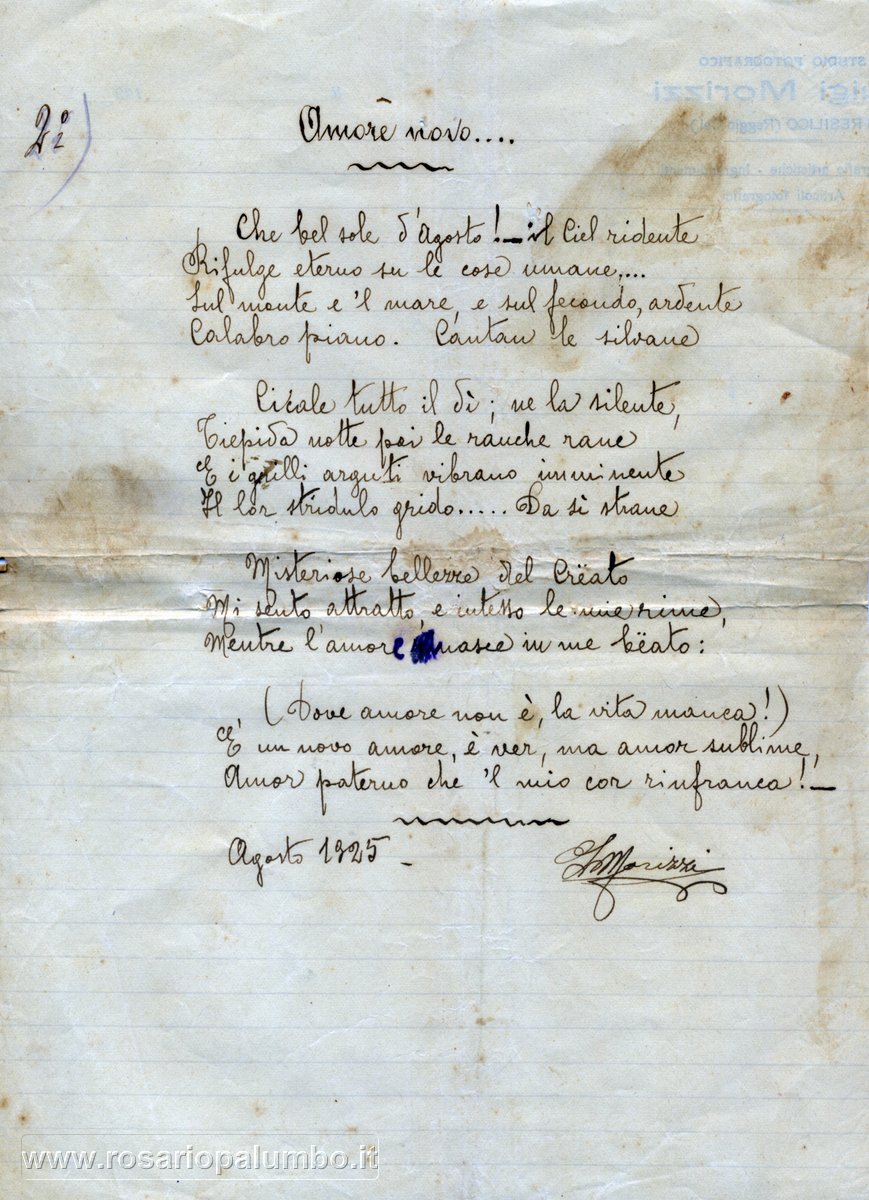 STUDIO FOTOGRAFICO
Luigi Morizzi
RESILICO (Reggio Cal.)
2º)
Amore novo....
Che bel sole d'Agosto! — il Ciel ridente
Rifulge eterno su le cose umane,...
Sul monte e 'l mare, e sul fecondo, ardente
Calabro piano. Cantan le silvane
Cicale tutto il dì; ne la silente,
Tiepida notte poi le rauche rane
E i grilli arguti vibrano imminente
Il lor stridulo grido..... Da sì strane
Misteriose bellezze del Crëato
Mi sento attratto, e intesso le mie rime,
Mentre l'amore nasce in me bëato:
(Dove amore non è, la vita manca!)
E' un novo amore, è ver, ma amor sublime,
Amor paterno che 'l mio cor rinfranca! —
Agosto 1925 —
LMorizzi
www.rosariopalumbo.it